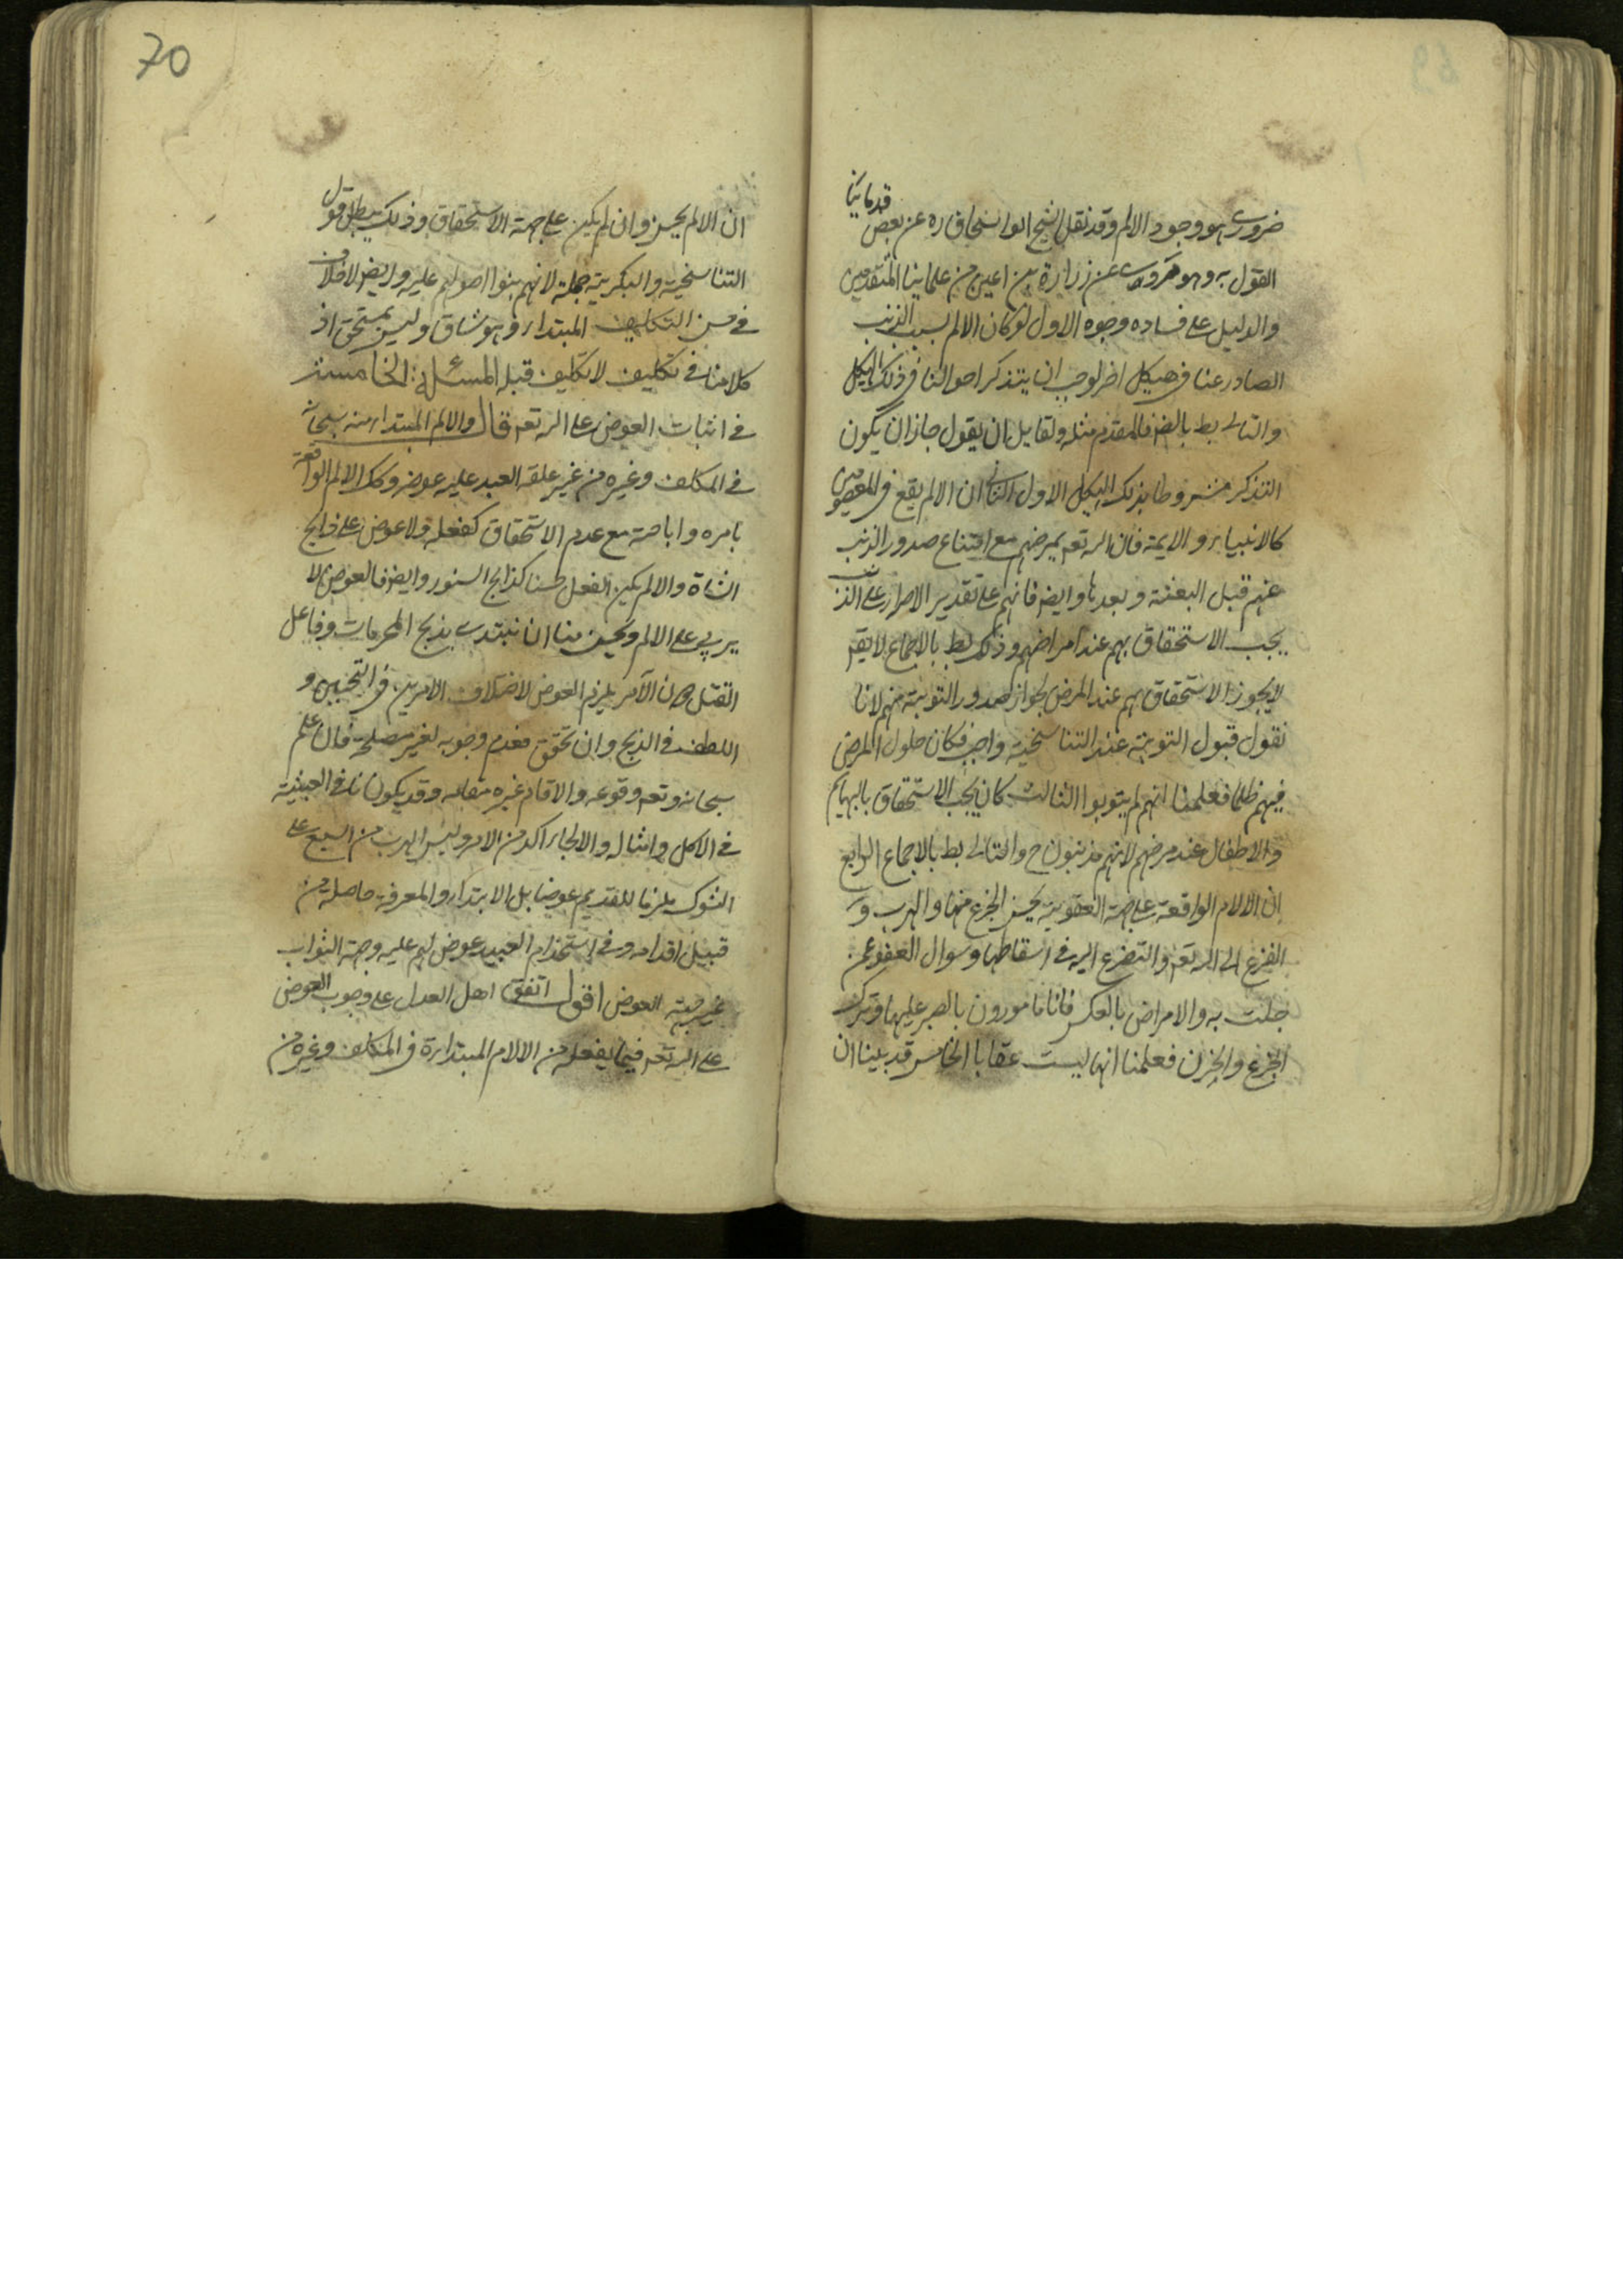 ضروري هو وجود الالم وقد نقل الشيخ ابو اسحاق ره عن بعض قدمائنا
القول به وهو مروي عن زرارة بن اعين من علمائنا المتقدمين
والدليل على فساده وجوه الاول لو كان الالم بسبب الذنب
الصادر عنا في هيكل اخر لوجب ان يتذكر احوالنا في ذلك الهيكل
والتالي بط بالضر فالمقدم مثله ولقايل ان يقول جاز ان يكون
التذكر مشروطا بذلك الهيكل الاول الثاني ان الالم يقع في المعصومين
كالانبياء والايمة فان الله تعه يمرضهم مع امتناع صدور الذنب
عنهم قبل البعثة وبعدها وايضه فانهم على تقدير الاصرار على الذنب
يجب الاستحقاق بهم عند امراضهم وذلك بط بالاجماع لا يقه
لا يجوز الاستحقاق بهم عند المرض لجواز صدور التوبة منهم لانا
نقول قبول التوبة عند التناسخية واجب فكان حلول المرض
فيهم ظلما فعلمنا انهم لم يتوبوا الثالث كان يجب الاستحقاق بالبهايم
والاطفال عند مرضهم لانهم مذنبون ح والتالي بط بالاجماع الرابع
ان الالام الواقعة على جهة العقوبة يحسن الجزع منها والهرب و
الفزع الى الله تعه والتضرع اليه في اسقاطها وسوال العفو عمن
جلت به والامراض بالعكس فانا مامورون بالصبر عليها وترك
الجزع والحزن فعلمنا انها ليست عقابا الخامس قد بينا ان
ان الالم يحسن وان لم يكن على جهة الاستحقاق وذلك يبطل قول
التناسخية والبكرية جملة لانهم بنوا اصولهم عليه وايضه لا خلاف
في حسن التكليف المبتداء وهو شاق وليس بمستحق اذ
كلامنا في تكليف لا تكليف قبله المسئلة الخامسة
في اثبات العوض على الله تعه قال والالم المبتداء منه سبحانه
في المكلف وغيره من غير علقة العبد عليه عوضه وكك الالم الواقعة
بامره واباحته مع عدم الاستحقاق كفعله ولا عوض على ذابح
الشاة والا لم يكن الفعل حسنا كذابح السنور وايضه فالعوض لا
يربي على الالم ويحسن منا ان نبتدي بذبح المحرمات وفاعل
القتل دون الآمر يلزم العوض لاختلاف الامرين في التحسين و
اللطف في الذبح وان تحقق فعدم وجوبه لغير مصلحة فان علم
سبحانه وتعه وقوعه والا قام غيره مقامه وقد يكون نافي العبثية
في الاكل وامثاله والالجاء اكد من الامر وليس الهرب من السبع على
الشوك ملزما للقديم عوضا بل الابتداء والمعرفة حاصلة من
قبيل اقدامه وفي استخدام العبيد عوض لهم عليه وجهة الثواب
غير جهة العوض اقول اتفق اهل العدل على وجوب العوض
على الله تعه فيما يفعله من الالام المبتداءة في المكلف وغيره من
70
69